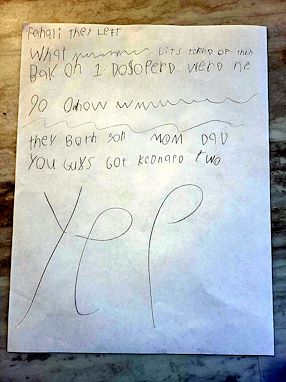 Fahali they Left
What Lits tehrd of them
Bak on 1 Dosoperd werd he
go Ohow
they Both soh MOM DaD
You Guys Got Kednaped two
Yep